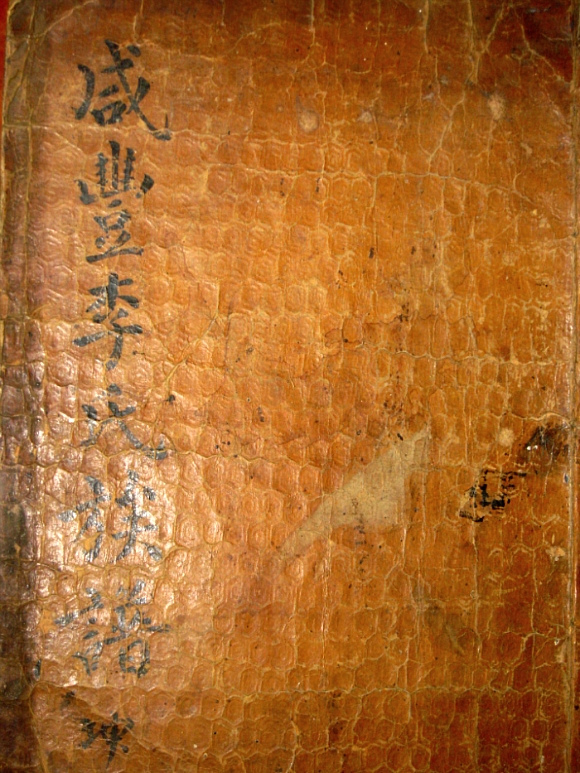 咸豐李氏族譜